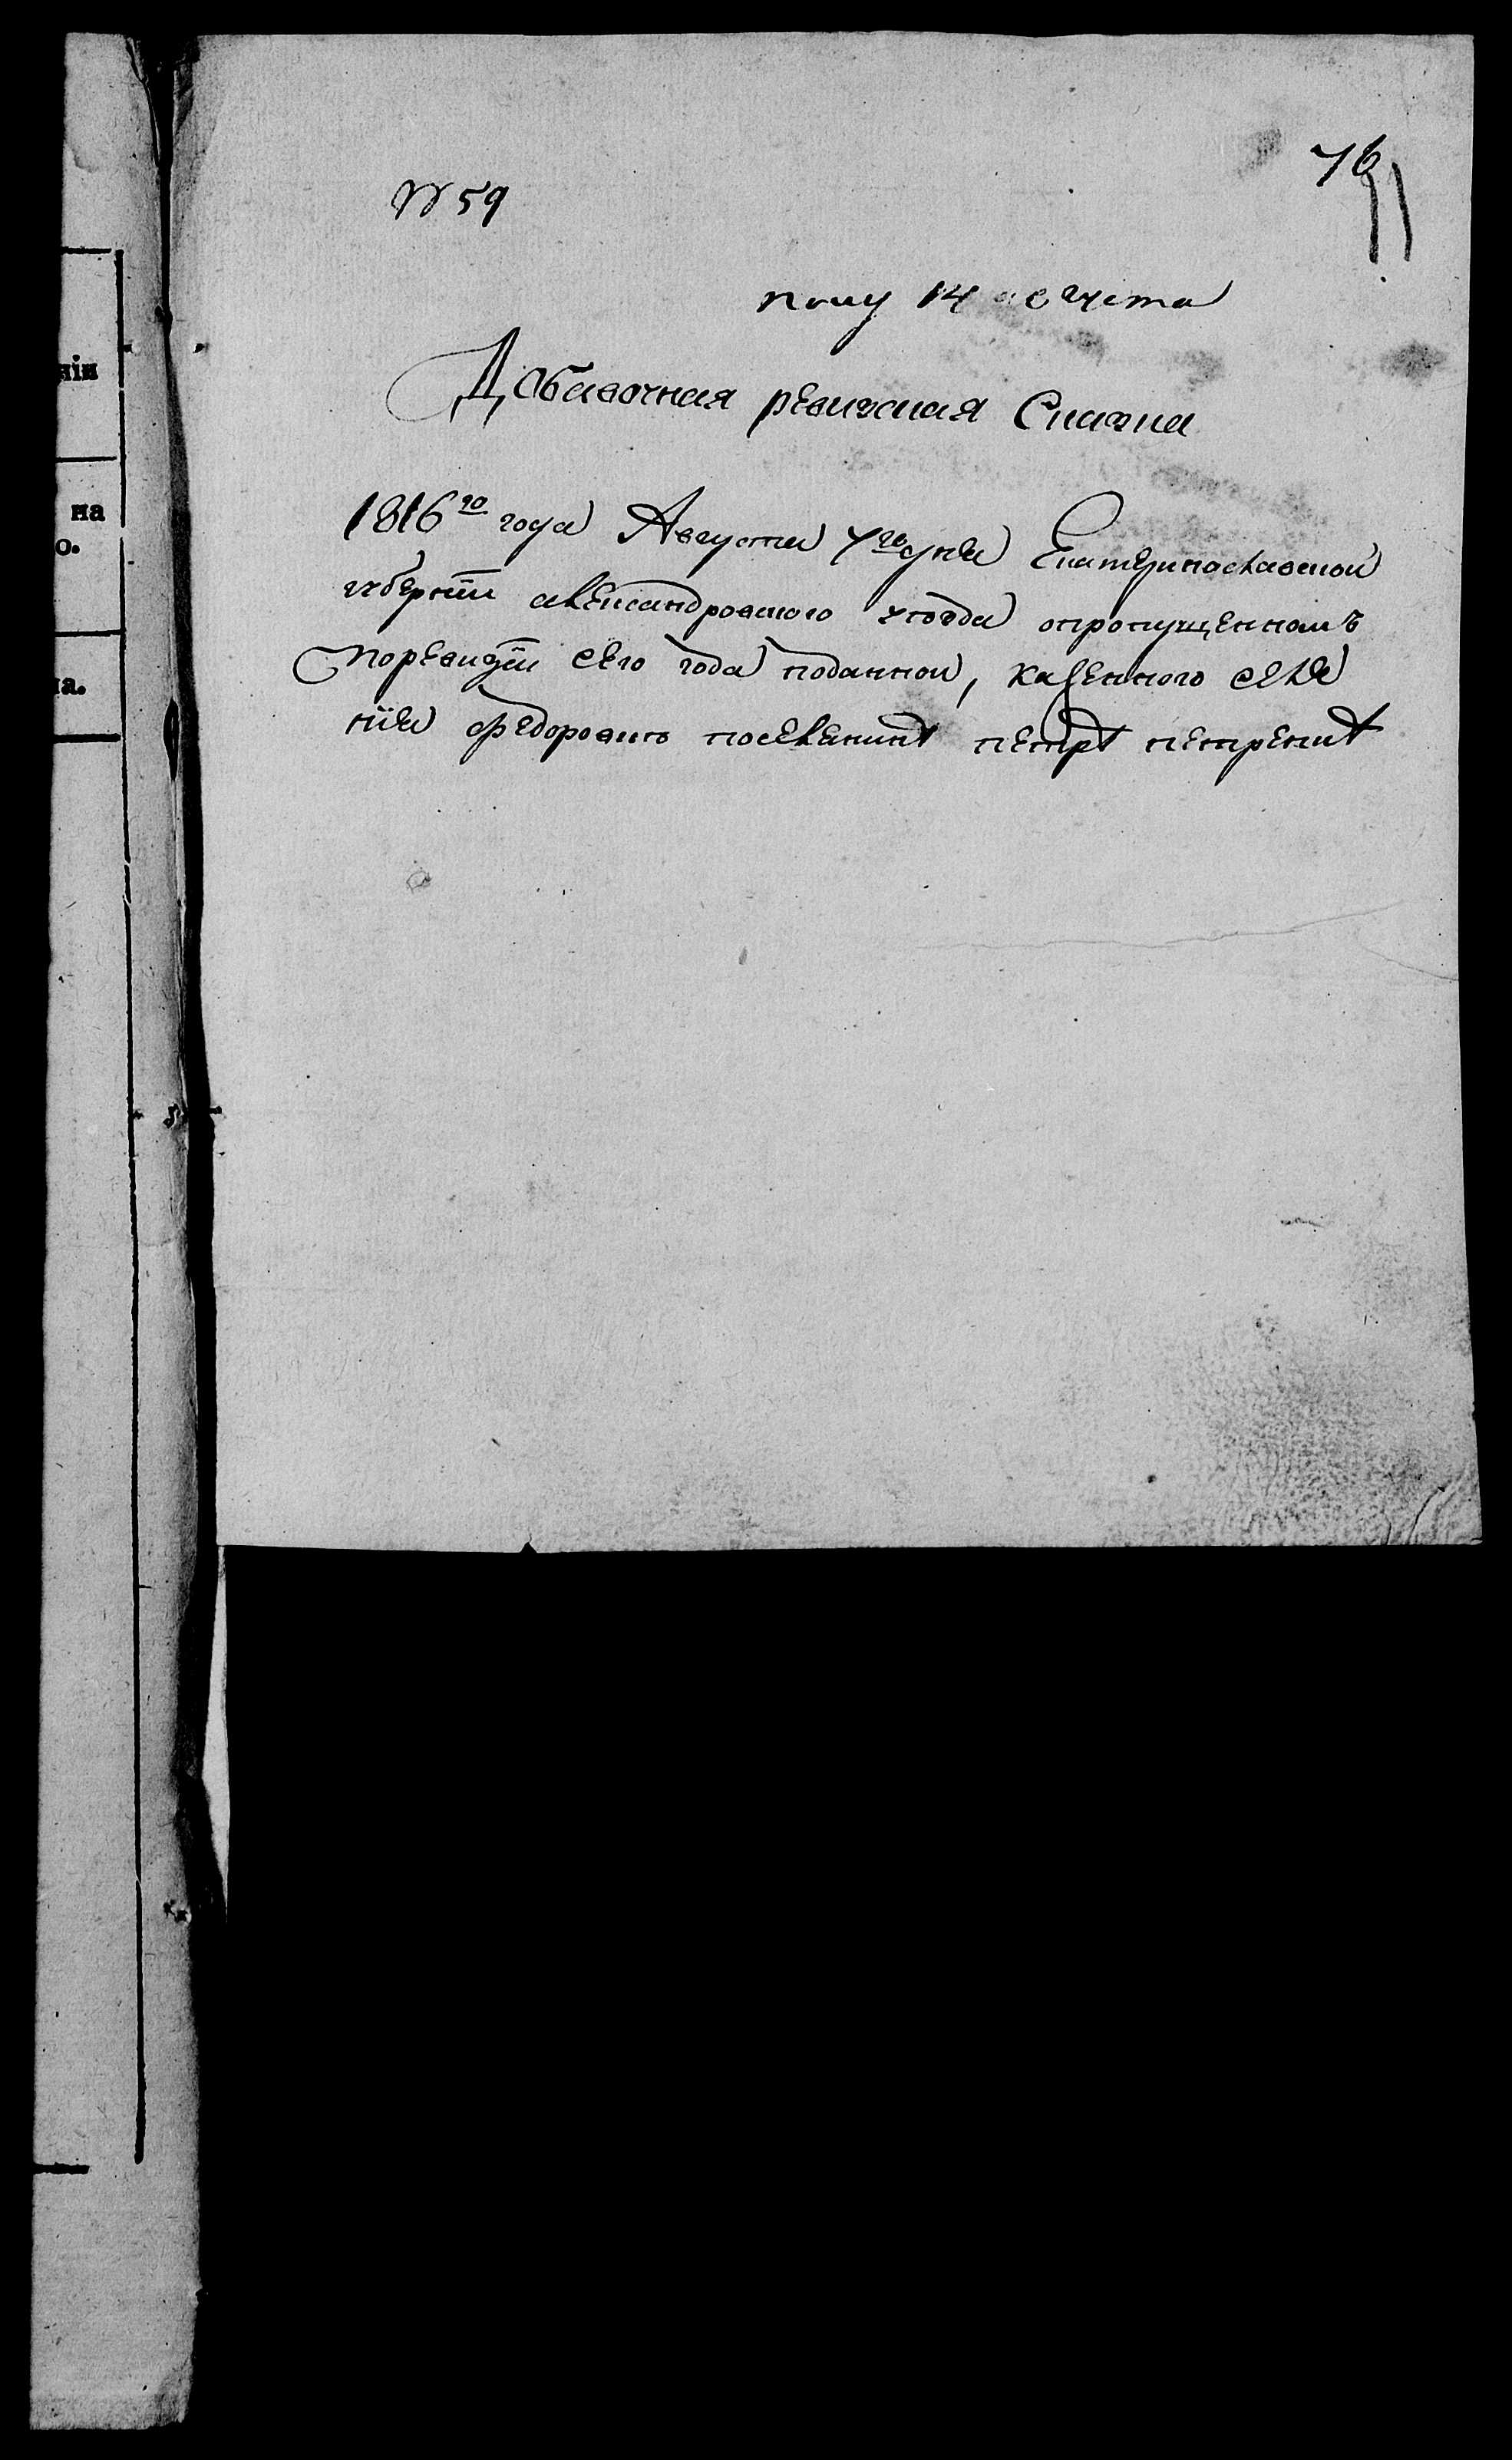 76
51
№ 59
полу 14 августа
Добавочная ревизская Сказка
1816го года Августа 7го дня Екатеринославской
губернїи александровского уезда опропущенномъ
поревизїи сего года поданной, казенного селе
нїя федоровки поселянинъ петръ петренко
нiи
на
о.
а.